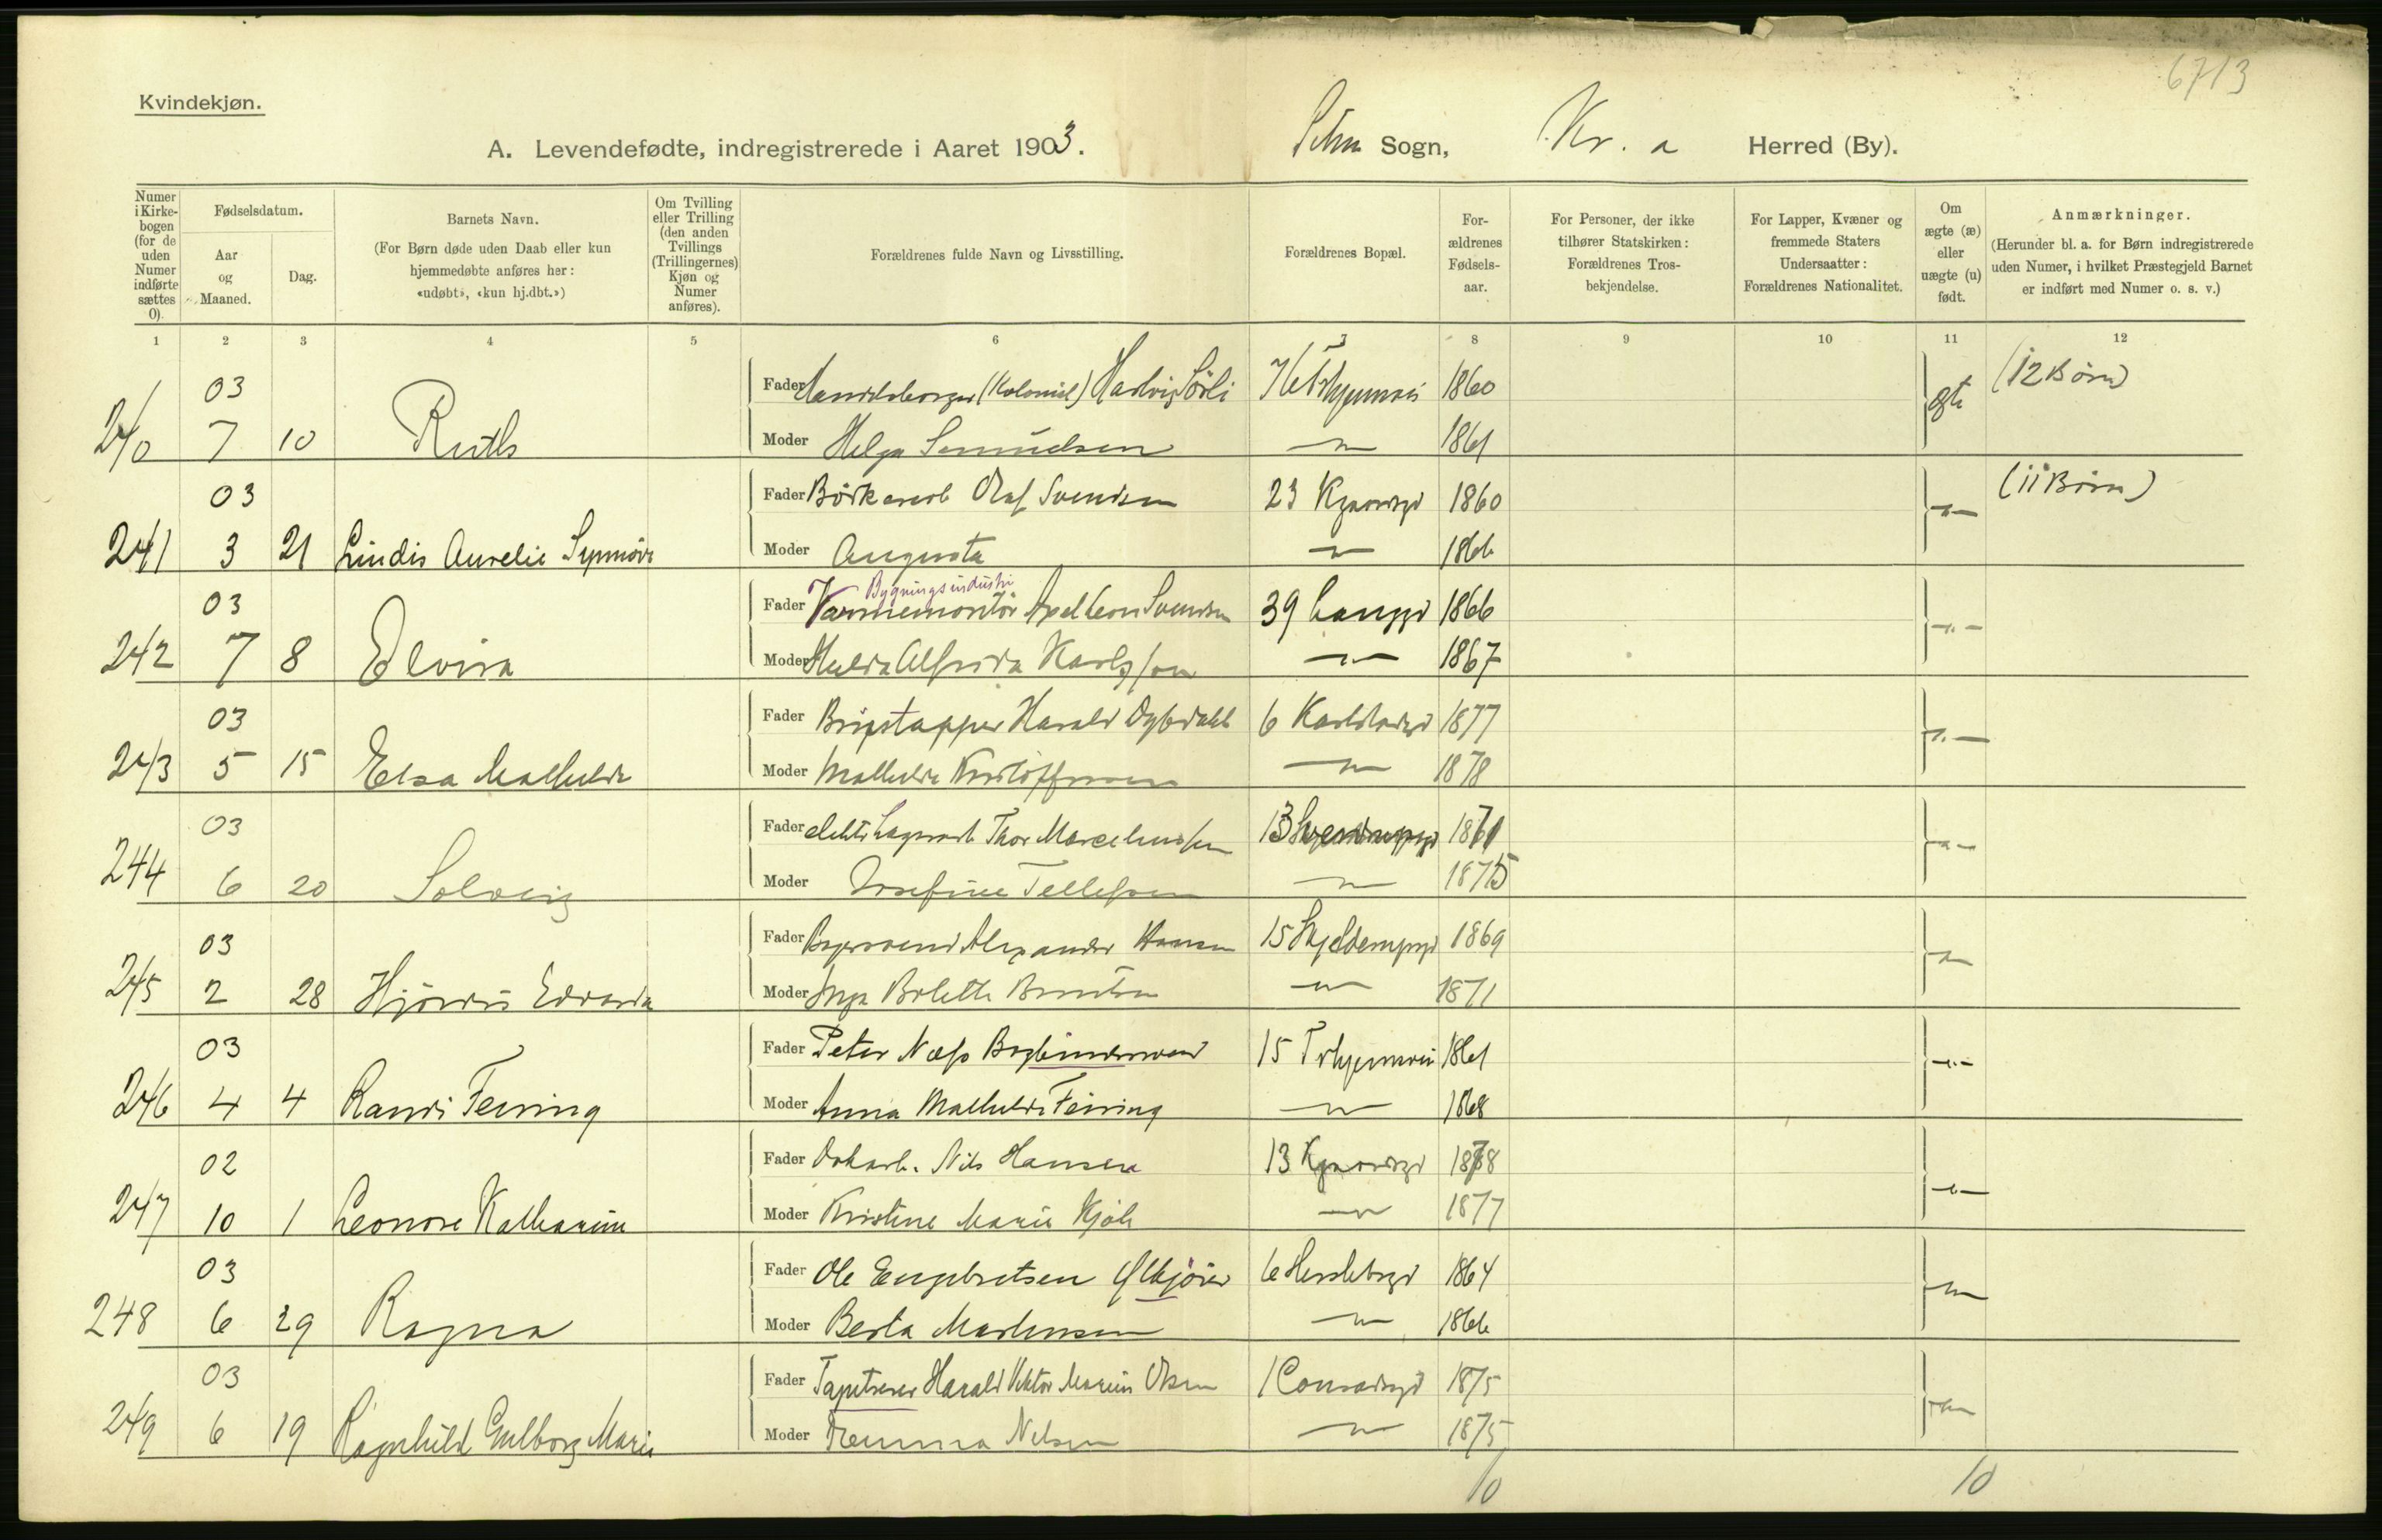 6713
Kvindekjøn.
A. Levendefødte, indregistrerede i Aaret 1903. Sogn, Kr. a Herred (By).
Numer i Kirke-bogen (for de uden Numer indførte sættes 0).
Fødselsdatum.
Aar og Maaned.
Dag.
Barnets Navn.
(For Børn døde uden Daab eller kun hjemmedøbte anføres her: «udøbt», «kun hj.dbt.»)
Om Tvilling eller Trilling (den anden Tvillings (Trillingernes) Kjøn og Numer anføres).
Forældrenes fulde Navn og Livsstilling.
Forældrenes Bopæl.
For-ældrenes Fødsels-aar.
For Personer, der ikke tilhører Statskirken: Forældrenes Tros-bekjendelse.
For Lapper, Kvæner og fremmede Staters Undersaatter: Forældrenes Nationalitet.
Om ægte (æ) eller uægte (u) født.
Anmærkninger.
(Herunder bl. a. for Børn indregistrerede uden Numer, i hvilket Præstegjeld Barnet er indført med Numer o. s. v.)
1 2 3 4 5 6 7 8 9 10 11 12
03 Fader (Kolonial) 1860 (12 Børn)
240 7 10 Ruth Moder Helga 1861
03 Fader Olaf Svendsen 23 1860 (11 Børn)
241 3 21 Lindis Aurelie Synnöve Moder Augusta 1866
Bygningsindustri
03 Fader Varmemontör Axel Leon Svendsen 39 Langgd 1866
242 7 8 Elvira Moder Hulda Alfrida Karlsson 1867
03 Fader Harald 6 Karlstadgd 1877
243 5 15 Elsa Mathilde Moder Mathilde 1878
03 Fader Thor 13 1871
244 6 20 Solveig Moder Josefine Tellefsen 1875
03 Fader Alexander Hansen 15 1869
245 2 28 Hjördis Edvarda Moder Inga Bolette 1871
03 Fader Peter Næss Bogbindersvend 15 1861
246 4 4 Randi Feiring Moder Anna Mathilde Feiring 1868
02 Fader Nils Hansen 13 1878
247 10 1 Leonore Katharine Moder Kristine Marie 1877
03 Fader Ole Engebretsen Ølkjører 6 Herslebsgd 1864
248 6 29 Ragna Moder Berta Martinsen 1866
03 Fader Tapetserer Harald Viktor Marius Olsen 1 Conradsgd 1875
249 6 19 Ragnhild Gulborg Marie Moder Nilsen 1875
10 10